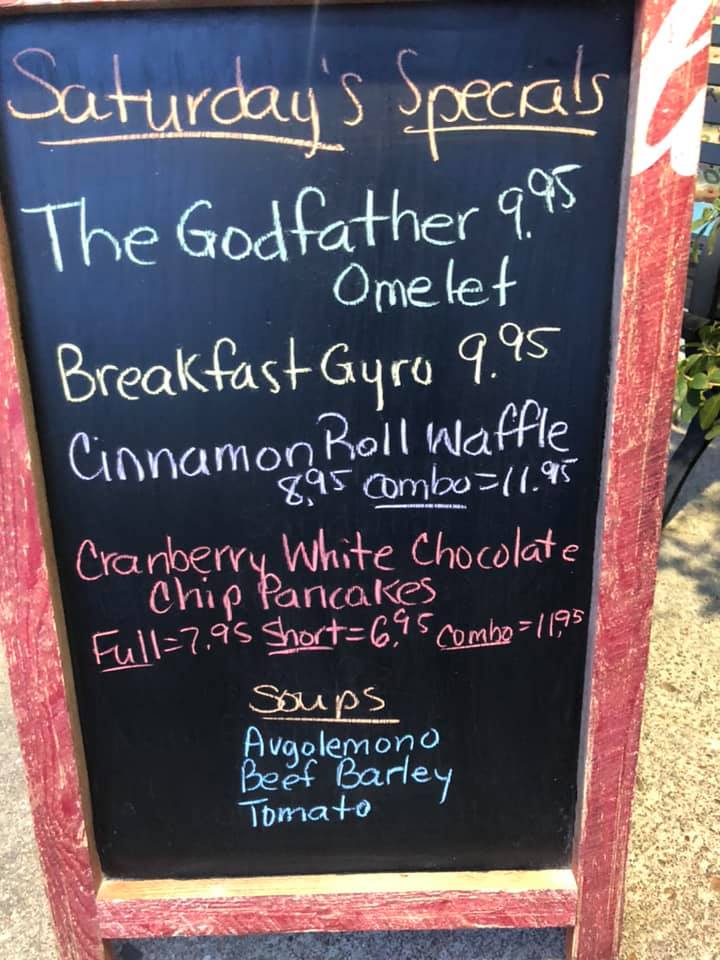 Saturday's Specials
The Godfather 9.95
Omelet
Breakfast Gyro 9.95
Cinnamon Roll Waffle
8.95 combo=11.95
Cranberry White Chocolate
Chip Pancakes
Full=7.95 Short=6.95 combo=11.95
Soups
Avgolemono
Beef Barley
Tomato